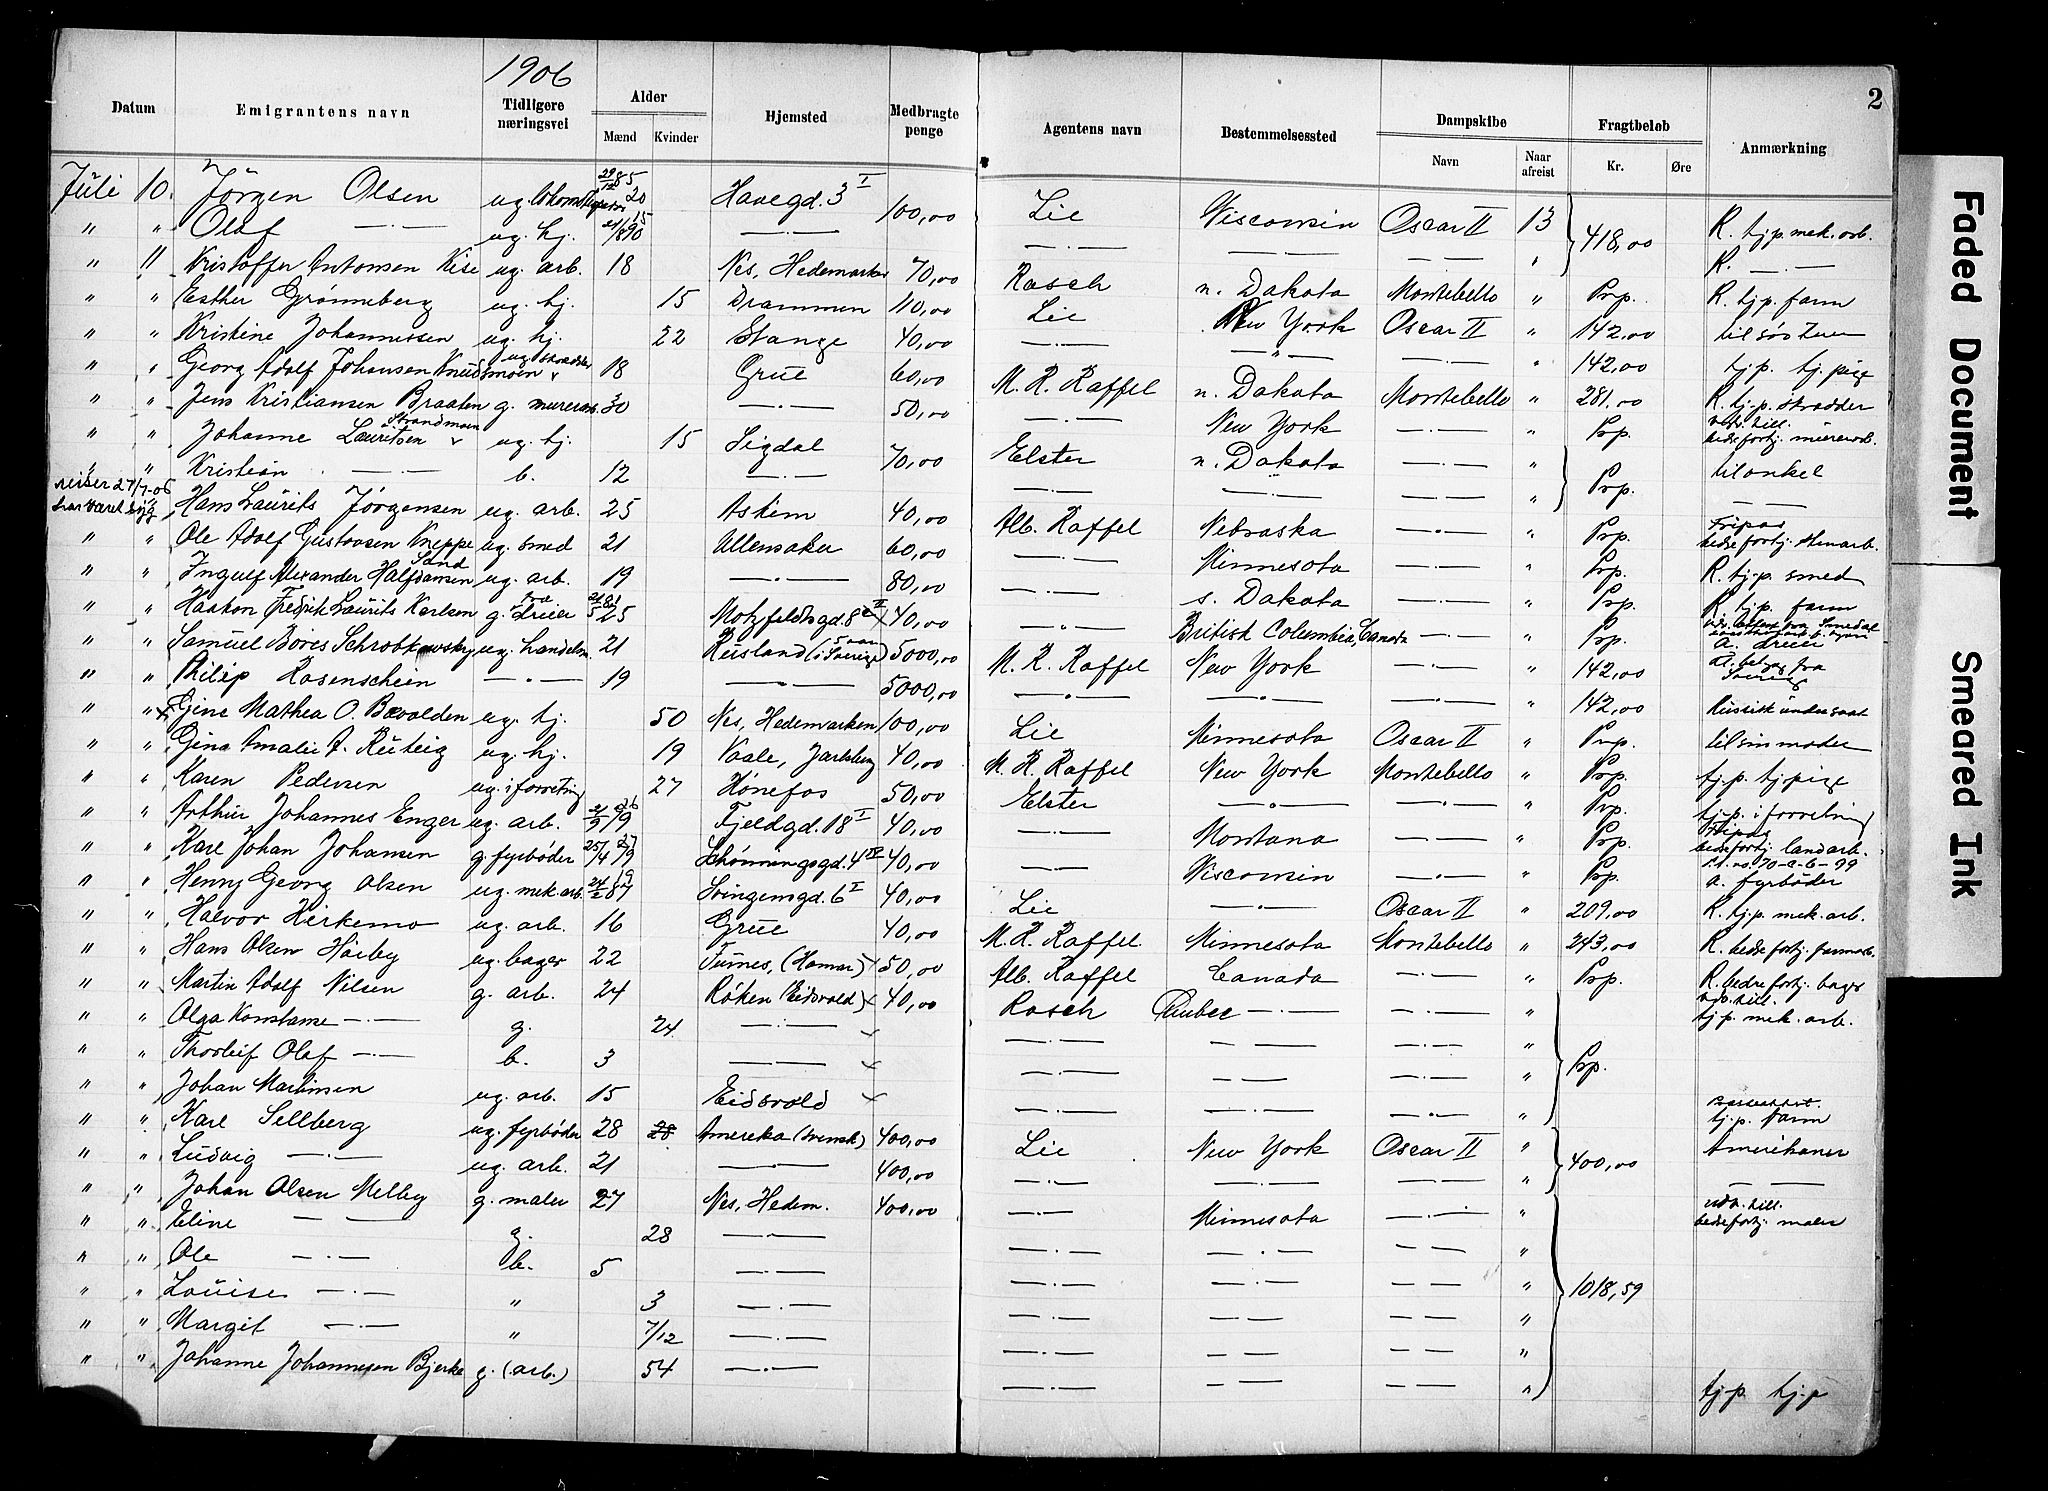 1906
2
Datum | Emigrantens navn | Tidligere næringsvei | Alder Mænd Kvinder | Hjemsted | Medbragte penge | Agentens navn | Bestemmelsessted | Dampskibe Navn Naar afreist | Fragtbeløb Kr. Øre | Anmærkning
Juli 10. Jörgen Olsen ug. 29/12 85 20 Havegd. 3 I 100,00 Lie Wisconsin Oscar II 13 418,00 R. tj.p. mek. arb.
" " Olaf —·— ug. hj. 21/8 90 15 —·— —·— —·— —·— " R. —·—
" 11 Kristoffer Antonsen Kise ug. arb. 18 Nes, Hedemarken 70,00 Rasch n. Dakota Montebello " Prp. R. tj.p. farm
" " Esther Grønneberg ug. hj. 15 Drammen 110,00 Lie New York Oscar II " 142,00 til søster
" " Kristine Johannessen ug. hj. 22 Stange 40,00 —·— —"— —·— " 142,00 tj.p. tj.pige
" " Georg Adolf Johansen Knudsmoen ug. skrædder 18 Grue 60,00 M. R. Raffel n. Dakota Montebello " 281,00 R. tj.p. skrædder
" " Jens Kristiansen Braaten g. murerarb. 30 —·— 50,00 —·— New York —·— " Prp. udv. till. bedre fortj. murerarb.
" " Johanne Lauritsen Strandmoen ug. hj. 15 Sigdal 70,00 Elster n. Dakota —·— " Prp. til onkel
" " Kristian —·— b. 12 —·— —·— —·— —·— " —
reiser 27/7-06
" Hans Laurits Jörgensen ug. arb. 25 Askim 40,00 Alb. Raffel Nebraska —·— " Prp. Fripas bedre fortj. stenarb.
" " Ole Adolf Gustavsen Kneppe ug. smed 21 Ullensaker 60,00 —·— Minnesota —·— " Prp. R. tj.p. smed
" " Ingulf Alexander Halfdansen Sand ug. arb. 19 —·— 80,00 s. Dakota " Prp. R. tj.p. farm
" " Haakon Fredrik Laurits Karlsen g. træ dreier 25 Motzfeldtsgd. 8 40,00 —·— British Columbia, Canada —·— " Prp. a. dreier
" " Samuel Bories Schrobkowsky ug. handelsm. 21 Rusland (i Sverige) 5000,00 M. R. Raffel New York —·— " 142,00 fra Sverige
" " Philip Rosenschein —"— 19 —·— 5000,00 —·— —·— —·— " 142,00 Russisk undersaat
" " x Gine Mathea O. Bævolden ug. hj. 50 Nes, Hedemarken 100,00 Lie Minnesota Oscar II " Prp. til sin moder
" " Gina Amalie A. Rustig ug. hj. 19 Vaale, Jarlsberg 40,00 M. R. Raffel New York Montebello " Prp. tj.p. tj.pige
" " Karen Pedersen ug. i forretning 27 Hønefos 50,00 Elster —·— —·— " Prp. tj.p. i forretning
" " Arthur Johannes Enger ug. arb. Fjeldgd. 18 I 40,00 —·— Montana —·— " Prp. Fripas bedre fortj. landarb.
" " Karl Johan Johansen g. fyrbøder 25/4 Schønningsgd. 4 IV 40,00 —·— Wisconsin " Prp. a. fyrbøder
" " Henny Georg Olsen ug. mek. arb. 24/2 87 19 Svingensgd. 6 I 40,00 Lie —·— Oscar II " 209,00 R. tj.p. mek. arb.
" " Halvor Kirkemo ug. arb. 16 Grue 40,00 M. R. Raffel Minnesota Montebello " 243,00 R. bedre fortj. farmarb.
" " Hans Olsen Hörby ug. bager 22 Furnes, (Hamar) 50,00 Alb. Raffel Canada —·— " Prp. R. bedre fortj. bager
" " Martin Adolf Nilsen g. arb. 24 Røken (Eidsvold) 40,00 Rasch Quebec —·— —·— " udv. till. tj.p. mek. arb.
" " Olga Konstanse —·— g. 24 —·— —·— —— —·— "
" " Thorleif Olaf —·— b. 3 —·— —·— —— —·— " Prp.
" " Johan Martinsen ug. arb. 15 Eidsvold —·— —— —·— " tj.p. farm
" " Karl Sellberg ug. fyrbøder 28 Amerika (svensk) 400,00 Lie New York Oscar II " 400,00 Amerikaner
" " Ludvig —·— ug. arb. 21 —·— 400,00 —·— —— —— " — —
" " Johan Olsen Melby g. maler 27 Nes, Hedem. 400,00 —·— Minnesota —·— " udv. till. bedre fortj. maler
" " Eline —— g. 28 —·— —·— —·— —— "
" " Ole —·— b. 5 —·— —·— —·— —— "
" " Louise —·— " 3 —·— —·— —— —— " 1018,59
" " Margit —·— " 7/12 —·— —·— —— —— "
" " Johanne Johannesen Bjerke g. (arb.) 54 —·— —·— —— —— " tj.p. tj.p
Faded Document
Smeared Ink